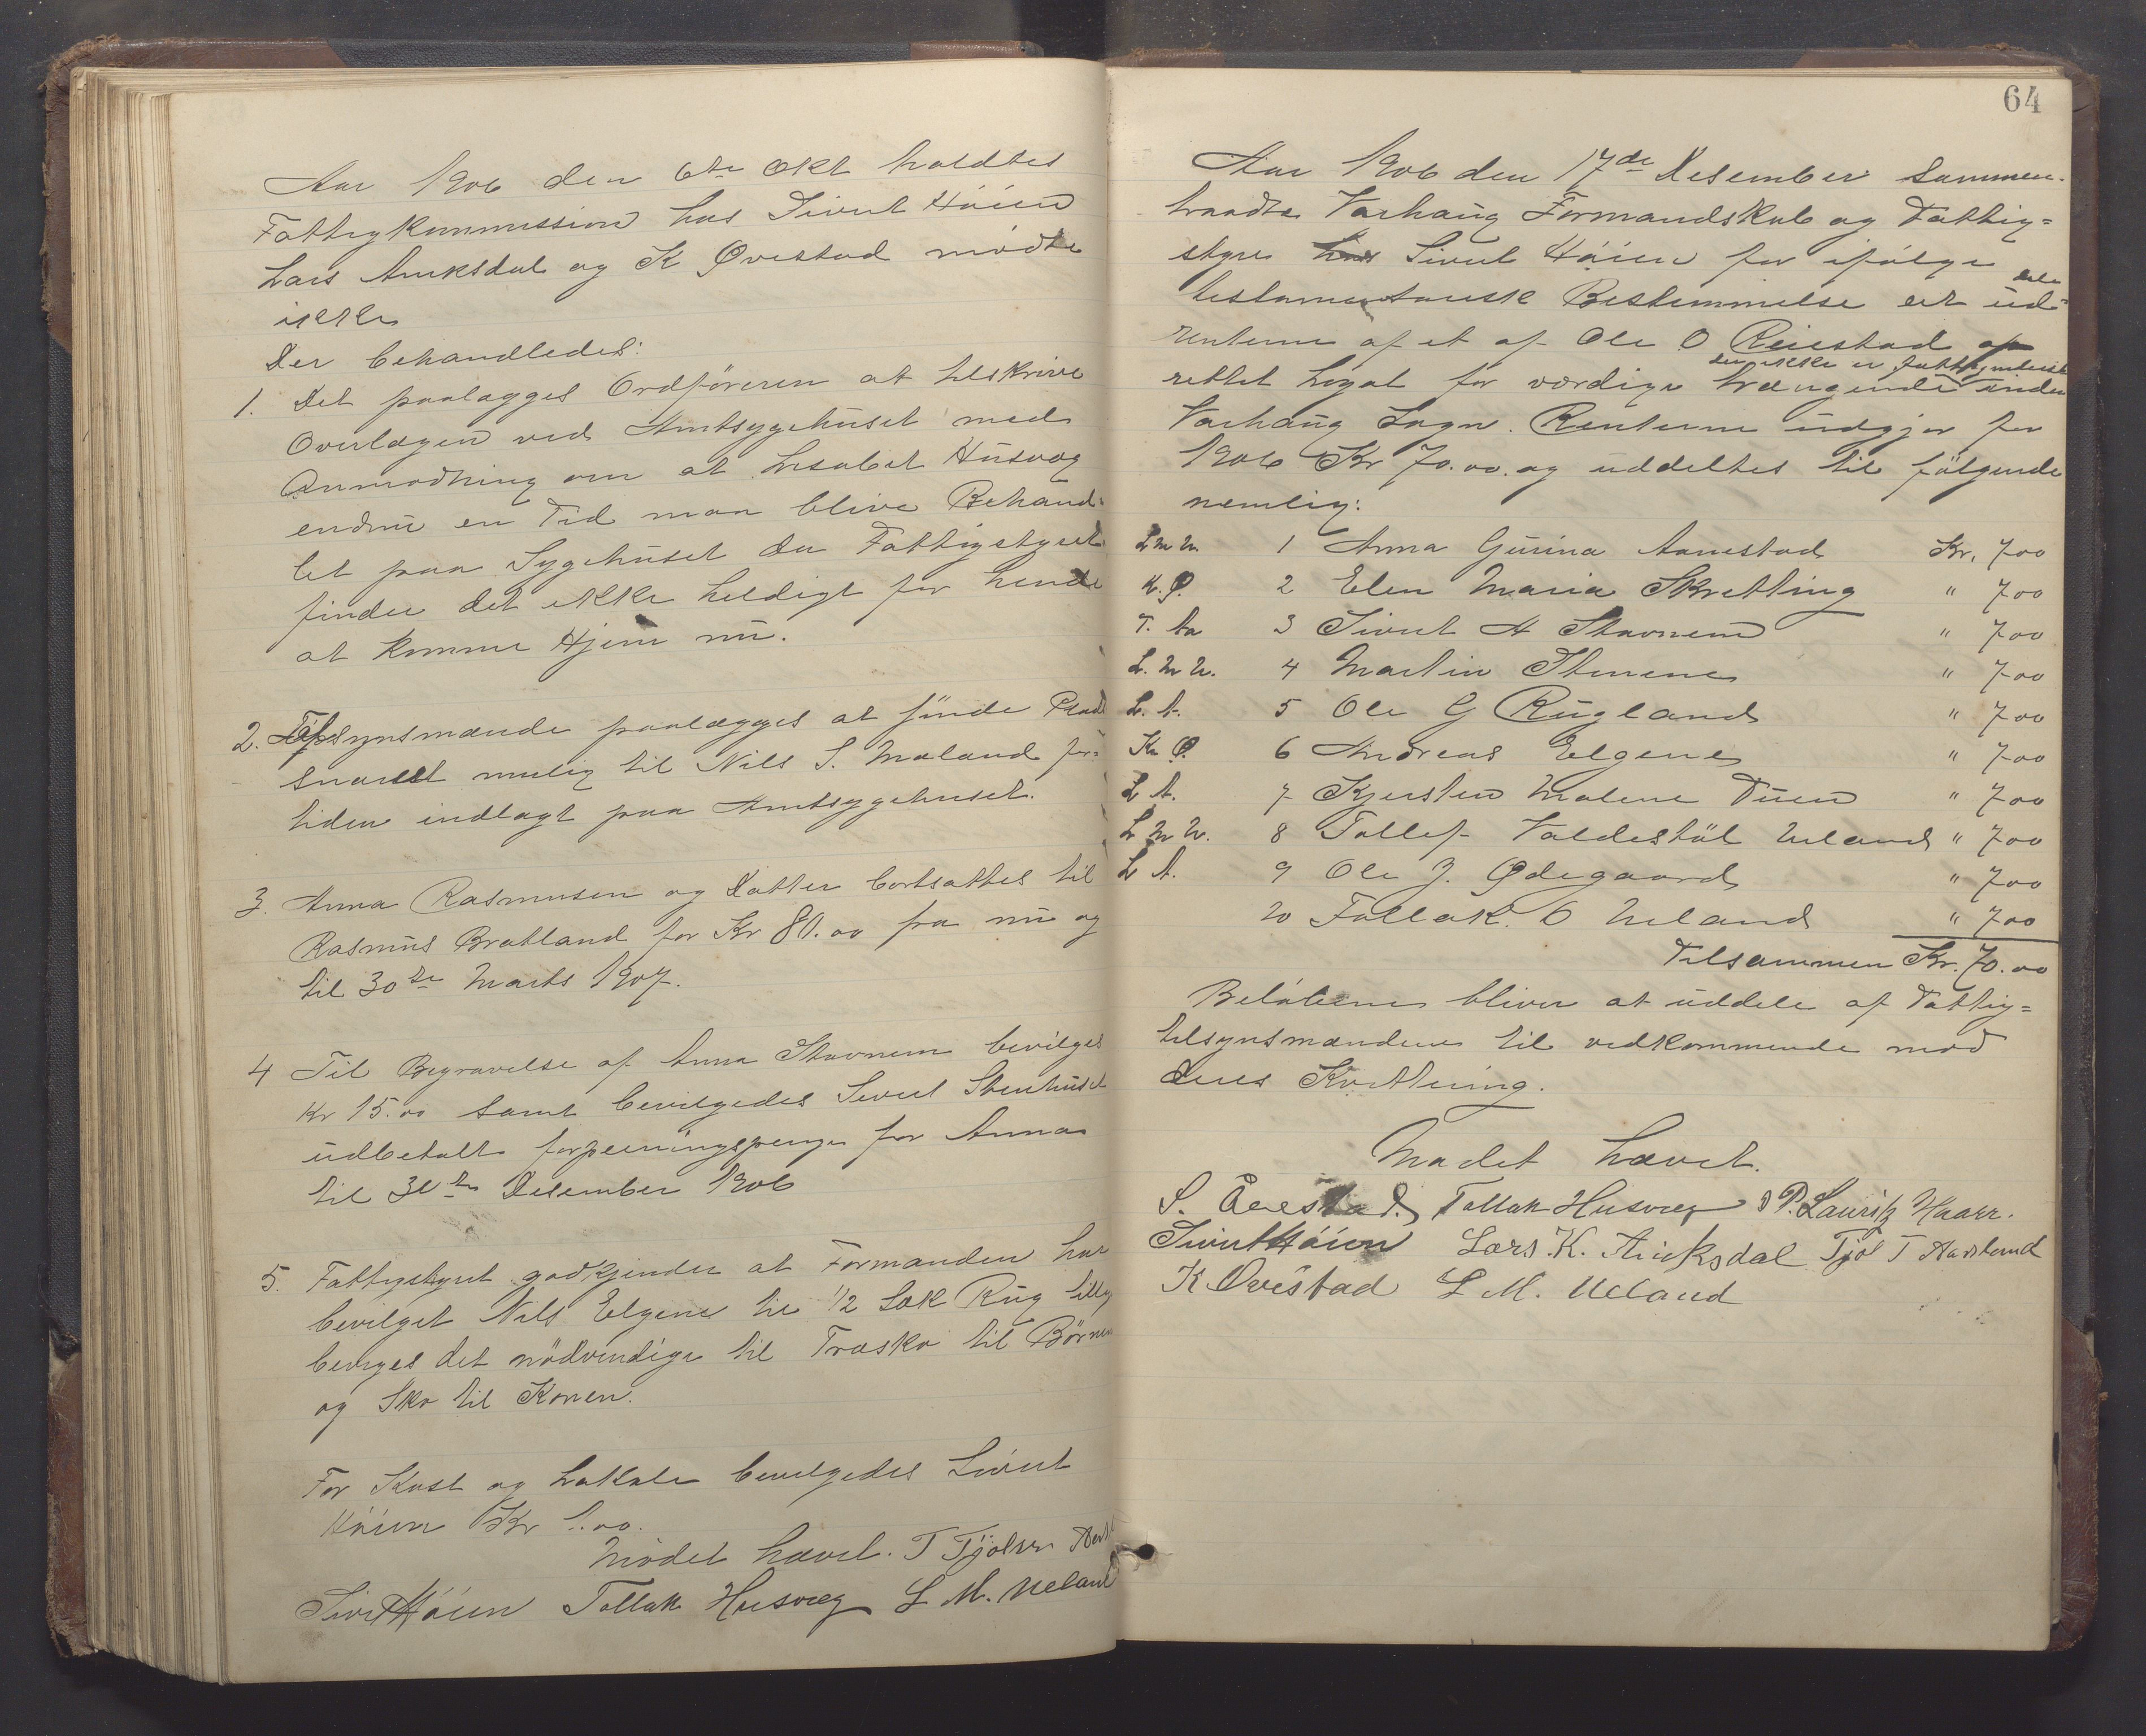 Aar 1906 den 6te Okt holdtes
Fattigkommission hos Sivert Høien
Lars Auksdal og K Øvestad mødte
ikke
Der behandledes:
1. Det paalægges Ordføreren at tilskrive
Overlægen ved Amtsygehuset med
Anmodning om at Lisabet Husvæg
endnu en Tid maa blive Behand-
let paa Sygehuset da Fattigstyret
finder det ikke heldigt for hende
at komme Hjem nu.
2. Tilsynsmænde paalægges at finde Plads
snarest mulig til Nils S. Maland for-
tiden indlagt paa Amtsygehuset.
3. Anna Rasmusen og Datter bortsattes til
Rasmus Bratland for Kr 80.00 fra nu og
til 30te Marts 1907.
4 Til Begravelse af Anna Stavnem bevilges
Kr 15.00 samt bevilgedes Sivert Stenhuset
udbetalt forpleiningspenge for Anna
til 31te Desember 1906
5. Fattigstyret godkjender at Formanden har
bevilget Nils Elgene til 1/2 Sæk Rug tillig
beviges det nødvendige til Træsko til Børnene
og Sko til Konen.
For Kost og Lokale bevilgedes Sivert
Høien Kr 1.00.
Mødet hævet. T Tjølsen
Sivert Høien Tollak Husvæg L M. Ueland
64
Aar 1906 den 17de Desember sammen-
traadte Varhaug Formandskab og Fattig=
styre hos Sivert Høien for ifølge
testamentarisk Bestemmelse at ud= dele
renterne af et af Ole O Reiestad op
rettet Legat for værdige trængende der ikke er fattigunderst inden
Varhaug Sogn. Renterne udgjør for
1906 Kr 70.00. og uddeltes til følgende
nemlig:
L M U. 1 Anna Gurina Aanestad Kr. 7 00
K. Ø. 2 Elen Maria Skretting " 7 00
T. Aa 3 Sivert A Stavnem " 7 00
L. M U. 4 Martin Stenene " 7 00
L. A. 5 Ole G Rugland " 7 00
K. Ø. 6 Andreas Elgene " 7 00
L A. 7 Kjersten Malene Tuen " 7 00
L M U. 8 Tollef Valdestøl Ueland " 7 00
L A. 9 Ole J. Ødegaard " 7 00
10 Tollak O Ueland " 7 00
Tilsammen Kr. 70.00
Beløbene bliver at uddele af Fattig=
tilsynsmændene til vedkommende mod
deres Kvittering.
Mødet hævet.
S. Årrestad. Tollak Husvæg O P. Lauritz Haarr.
Sivert Høien Lars. K. Auksdal Tjøl T Aarsland
K Øvestad L M. Ueland